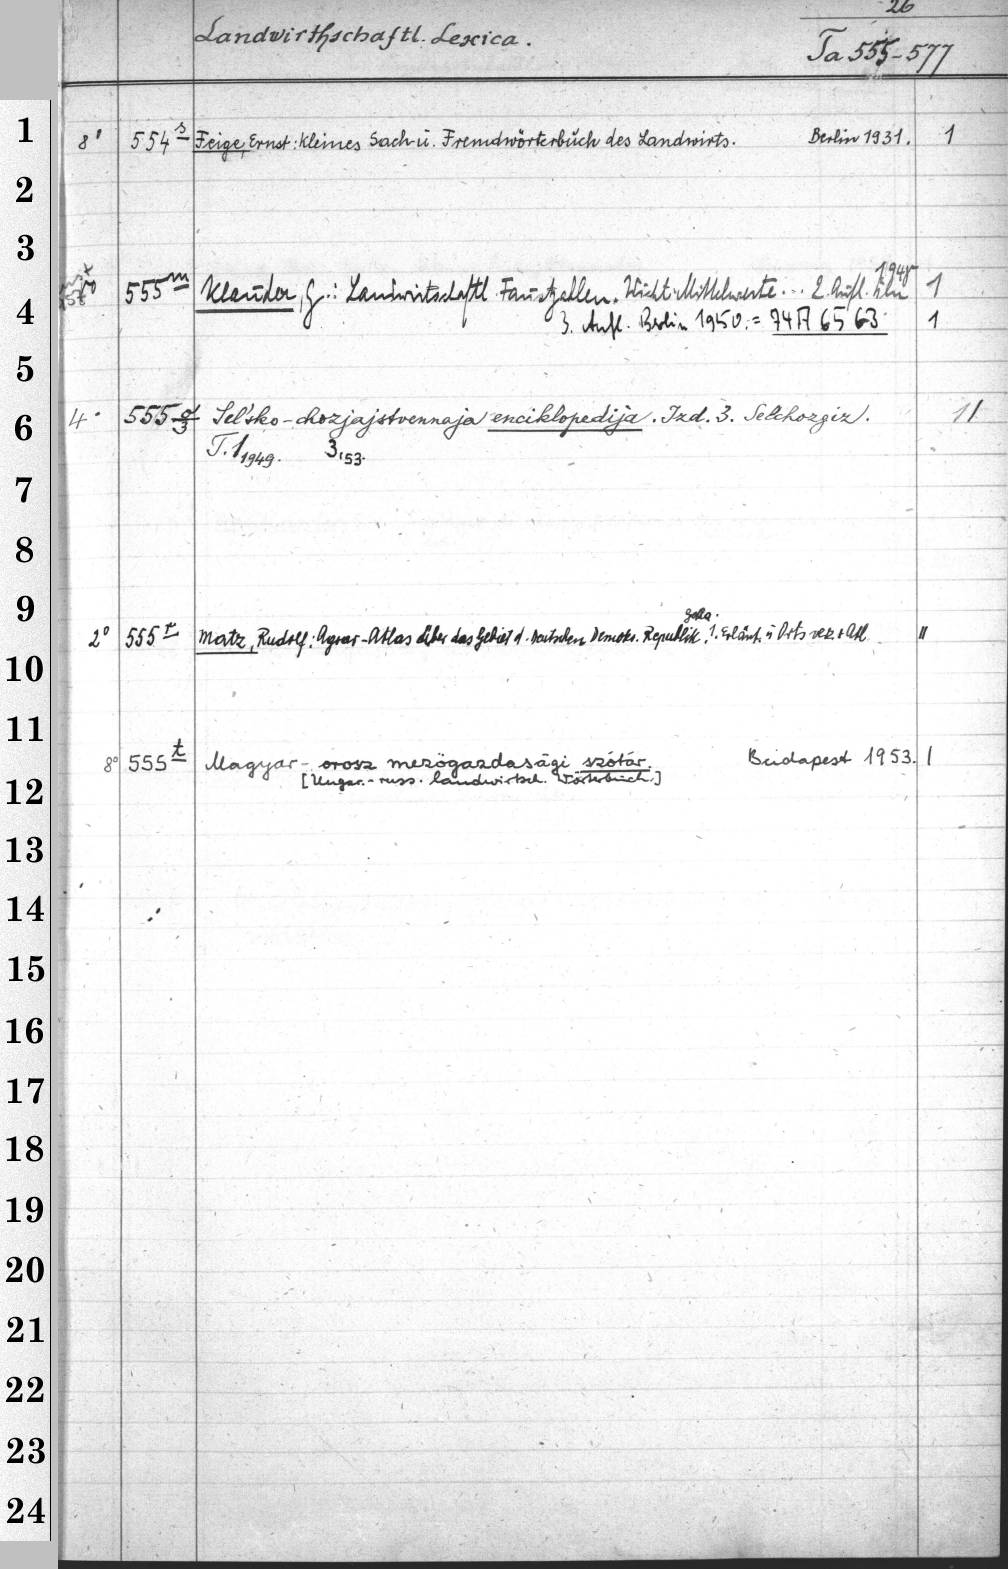 26
Landwirthschaftl. Lexica.
Ta 555-577
1 8° 554 s Feige, Ernst: Kleines Sach- u. Fremdwörterbuch des Landwirts. Berlin 1931. 1
2
3
1948
4 555 m Klauder, G.: Landwirtschaftl Faustzahlen. Wicht. Mittelwerte... 2. Aufl. 1
3. Aufl. Berlin 1950. = 74 A 65 63 1
5
6 4° 555 Sel'sko-chozjajstvennaja enciklopedija. Izd. 3. Selchozgiz. 1
T. 1, 1949. 3, 53.
7
8
9
Gotha.
2° 555 r Matz, Rudolf: Agrar-Atlas über das Gebiet d. Deutschen Demokr. Republik. 1. Erläut. u Ortsverz. + Atl. "
10
11
8° 555 t Magyar-orosz mezögazdasági szótár. Budapest 1953. 1
[Ungar.-russ. landwirtsch. Wörterbuch.]
12
13
14
15
16
17
18
19
20
21
22
23
24